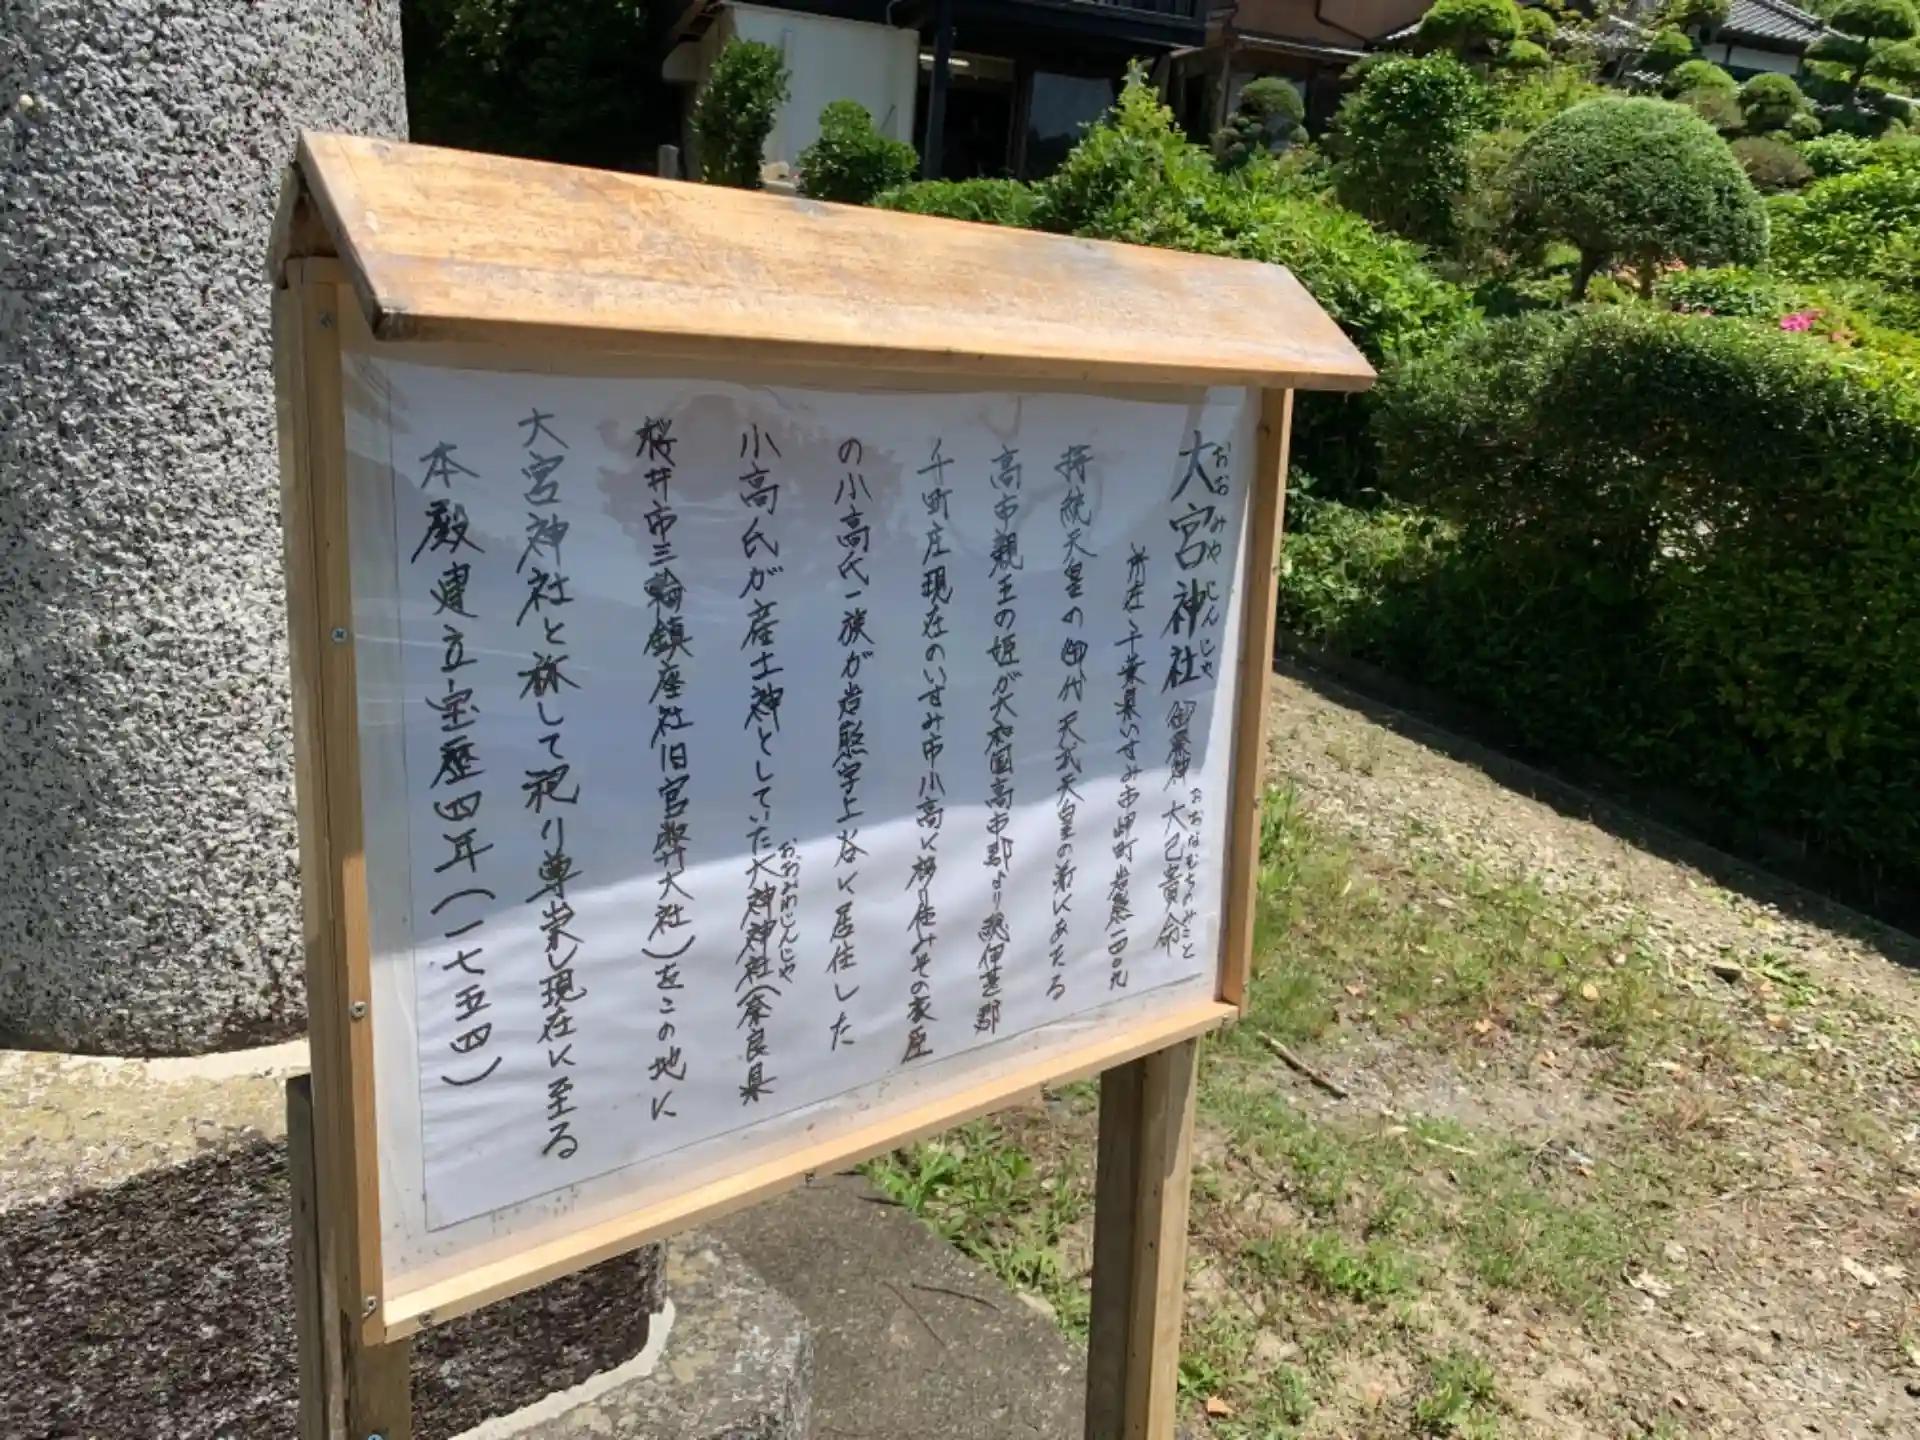 大宮神社 御祭神 大己貴命
おおみやじんじゃ おおなむちのみこと
所在 千葉県いすみ市岬町岩熊一四〇九
持統天皇の御代 天武天皇の弟にあたる
高市親王の姫が大和国高市郡より 伊甚郡
千町庄現在のいすみ市小高に移り住みその末臣
の小高氏一族が岩熊字上谷に居住した
小高氏が産土神としていた大神神社(奈良県
おおみわじんじゃ
桜井市三輪鎮座社旧官幣大社)をこの地に
大宮神社と称して祀り尊崇し現在に至る
本殿建立宝歴四年(一七五四)